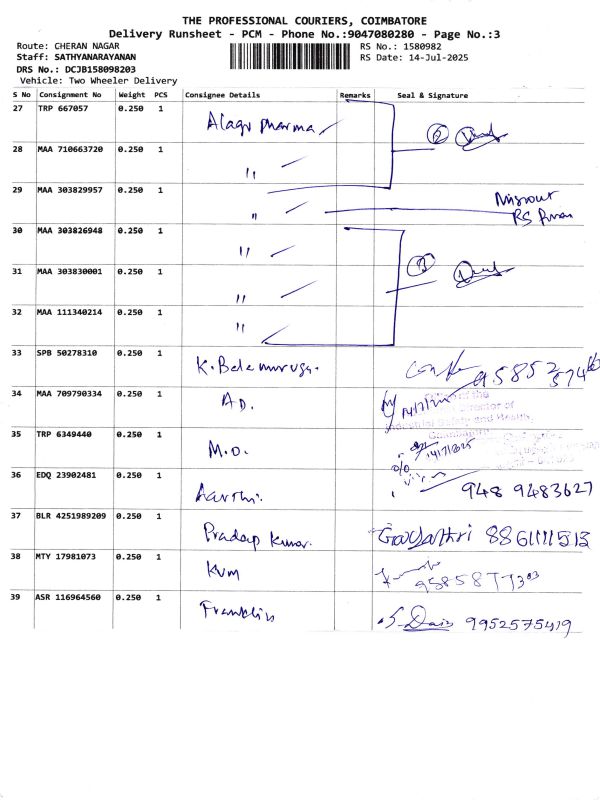 THE PROFESSIONAL COURIERS, COIMBATORE
Delivery Runsheet - PCM - Phone No.:9047080280 - Page No.:3
Route: CHERAN NAGAR
RS No.: 1580982
Staff: SATHYANARAYANAN
RS Date: 14-Jul-2025
DRS No.: DCJB158098203
Vehicle: Two Wheeler Delivery
S No Consignment No Weight PCS Consignee Details Remarks Seal & Signature
27 TRP 667057 0.250 1 Alagu pharma
28 MAA 710663720 0.250 1 "
29 MAA 303829957 0.250 1 "
30 MAA 303826948 0.250 1 "
31 MAA 303830001 0.250 1 "
32 MAA 111340214 0.250 1 "
33 SPB 50278310 0.250 1 K. Balamuruga.
34 MAA 709790334 0.250 1 A D. 14/7/25
35 TRP 6349440 0.250 1 M.O. 14/7/2025
36 EDQ 23902481 0.250 1 Aarthi. 948 9483627
37 BLR 4251989209 0.250 1 Pradeep Kumar. Gayathri 8861111513
38 MTY 17981073 0.250 1 KVM
39 ASR 116964560 0.250 1 Franklin 9952575419